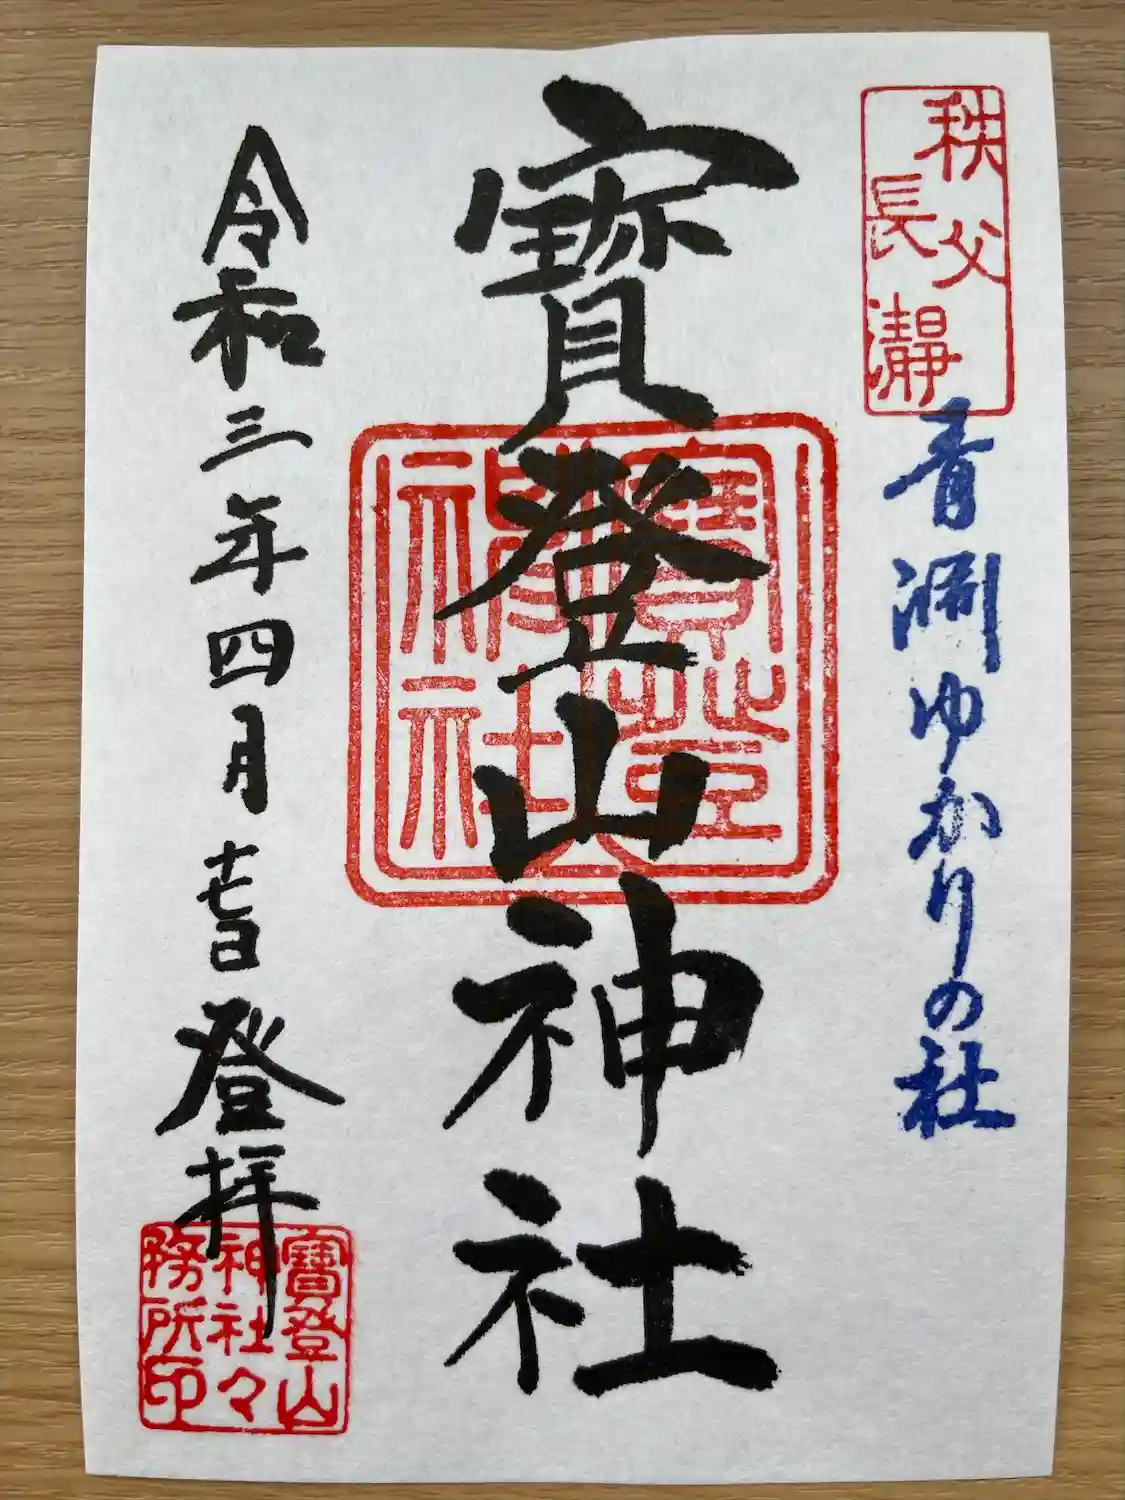 秩父
長瀞
青淵ゆかりの社
寳登山神社
寳登山
神社
令和三年四月十七日登拝
寳登山
神社々
務所印